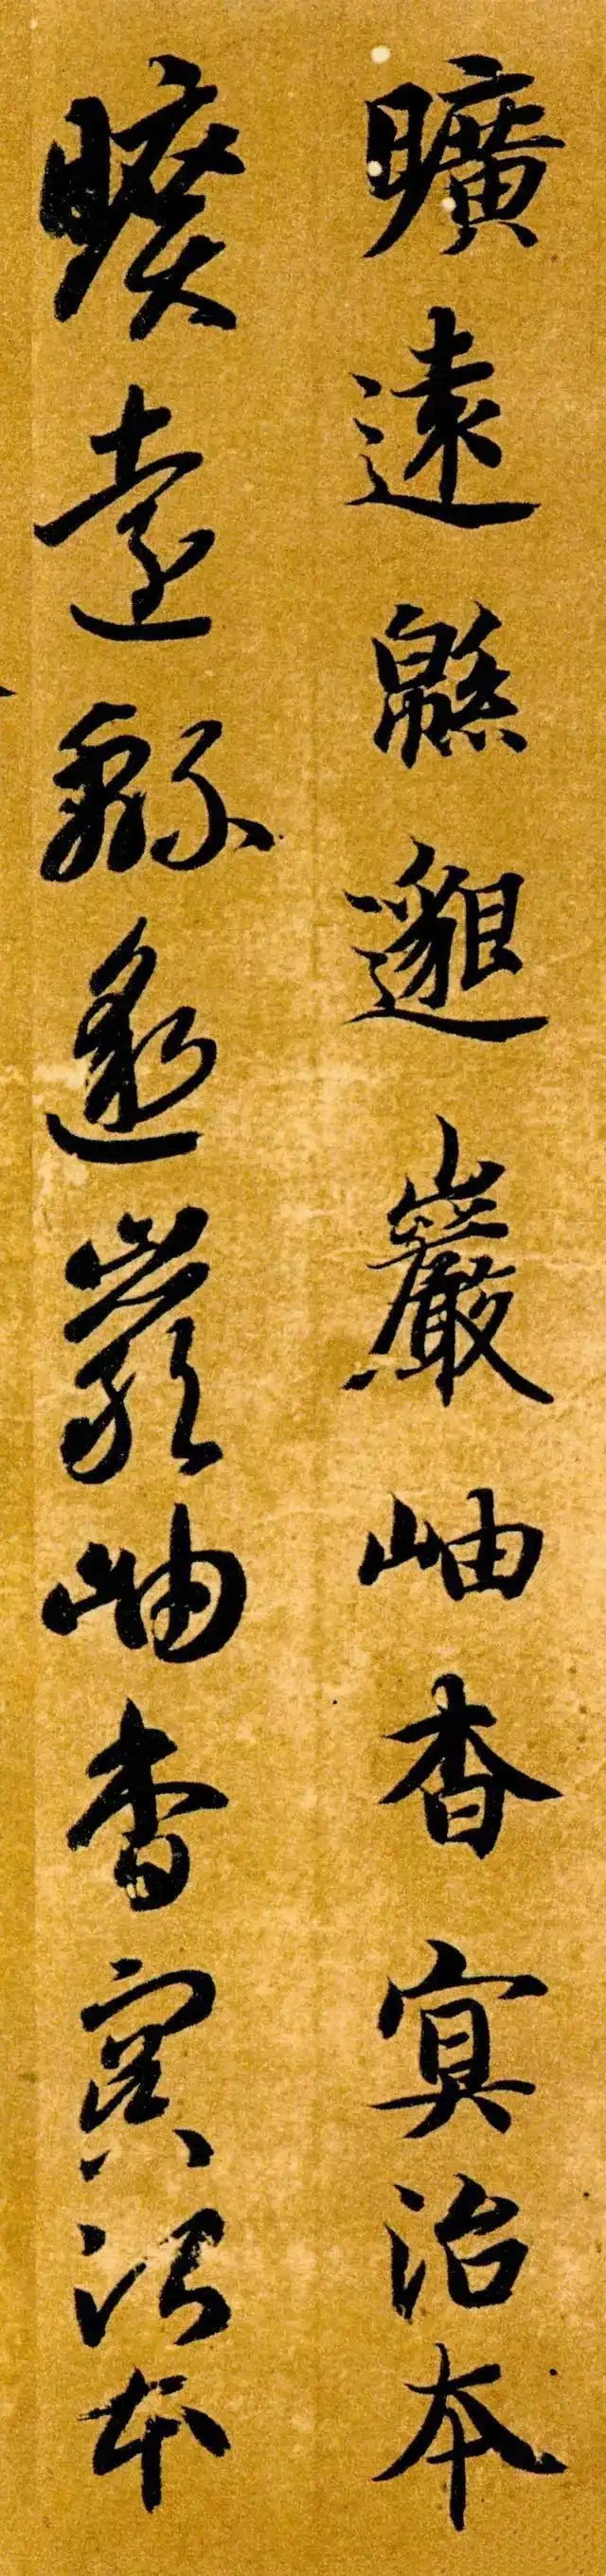 曠遠緜邈巖岫杳冥治本
曠遠緜邈巖岫杳冥治本